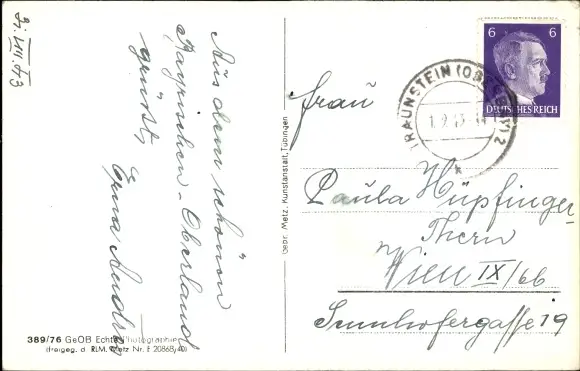 Aus dem schönen
Bayrischen-Oberland
grüßt,
Erna
389/76 GeOB Echte Photographie
(freigeg. d. RLM. Metz Nr. F 20868/40)
Gebr. Metz, Kunstanstalt, Tübingen
6 6
DEUTSCHES REICH
TRAUNSTEIN (OBERBAY) 2
1.9.43
Frau
Paula Hüpfinger
Thern
Wien IX/66
Sennhofergasse 19